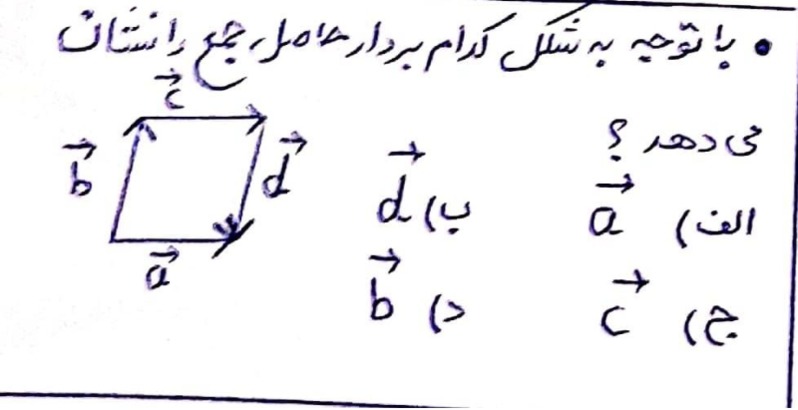 • با توجه به شکل کدام بردار حاصل جمع را نشان
می دهد ؟
c⃗
b⃗
d⃗
a⃗
الف) a⃗ ب) d⃗
ج) c⃗ د) b⃗